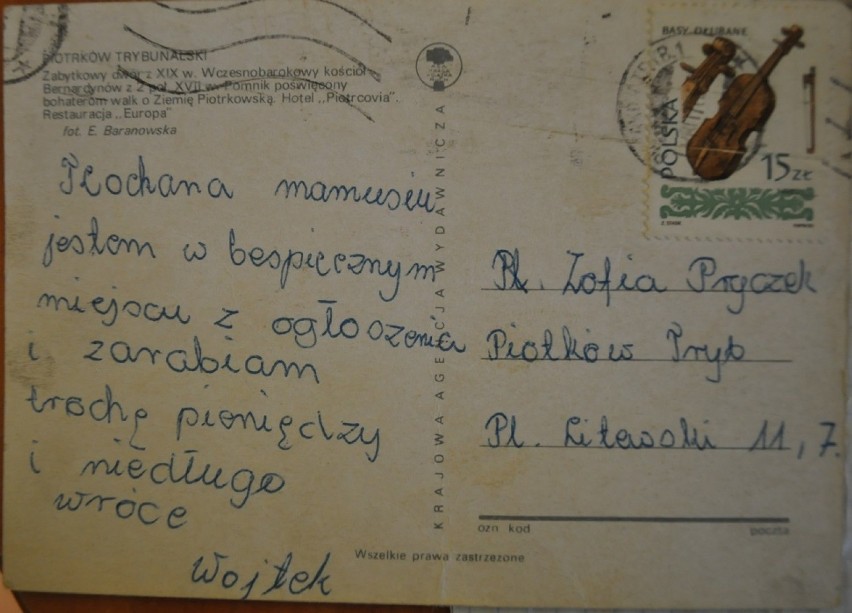 PIOTRKÓW TRYBUNALSKI
Zabytkowy dwór z XIX w. Wczesnobarokowy kościół
Bernardynów z 2 poł. XVII w. Pomnik poświęcony
bohaterom walk o Ziemię Piotrkowską. Hotel „Pietrcovia”.
Restauracja „Europa”
fot. E. Baranowska
Kochana mamusiu
jestem w bespięcznym
miejscu z ogłoszenia
i zarabiam
trochę pieniędzy
i niedługo
wróce
Wojtek
KRAJOWA AGENCJA WYDAWNICZA
BASY DŁUBANE
POLSKA
15 ZŁ
Zofia Pryczek
Piotków Tryb
Pl. Litewski 11, 7.
ozn kod
poczta
Wszelkie prawa zastrzeżone